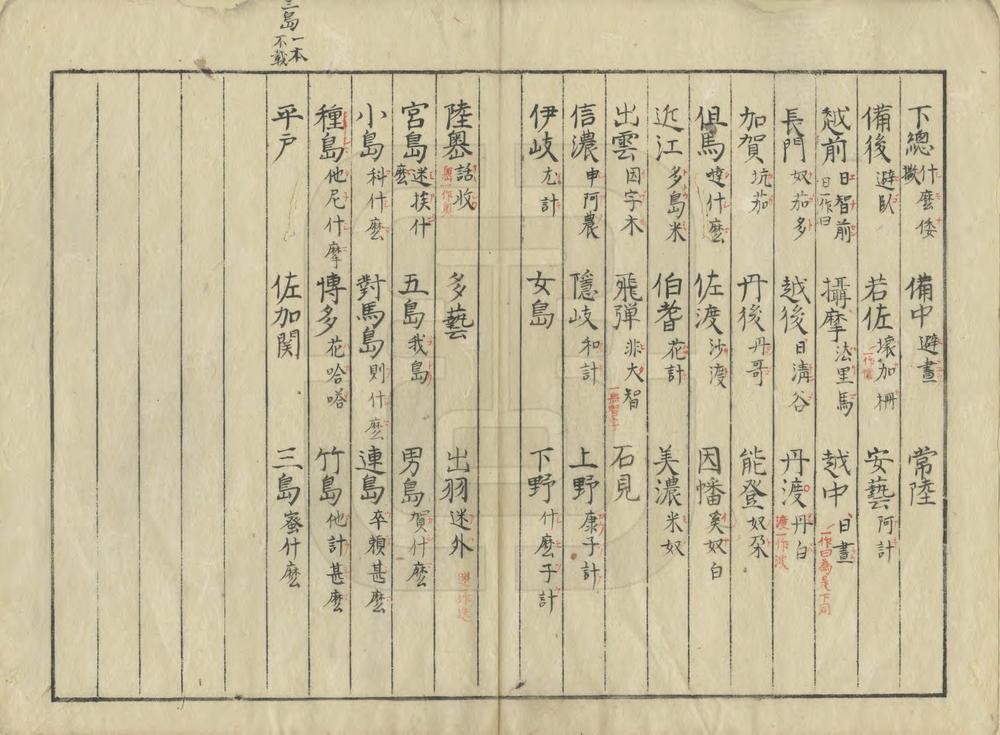 三島一本
不載
下總什麼倭撒 備中避晝 常陸
備後避臥 若佐壞加柵 安藝阿計
越前日智前 攝摩法里馬 越中日晝
日一作曰
一作曰為是下同
長門奴茄多 越後日溝谷 丹渡丹白
渡一作波
加賀坑茄 丹後丹哥 能登奴朶
但馬噠什麼 佐渡沙渡 因幡奚奴白
近江多島米 伯耆花計 美濃米奴
出雲因字木 飛彈非大智 石見
一無智字
信濃申阿農 隱岐和計 上野康子計
伊岐尤計 女島 下野什麼子計
陸奧話收 多藝 出羽迷外
宮島迷挨什麼 五島我島 男島賀什麼
小島科什麼 對馬島則什麼 連島卒賴甚麼
種島他尼什摩 博多花哈嗒 竹島他計甚麼
平戶 佐加関 三島蜜什麼